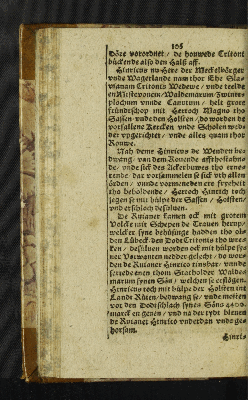 105
Döre verordnet / de houwede Critoni
bückende also den Halß aff.
Hinricus nu Here der Meckelbörger
vnde Wagerlande nam thor Ehe Slaw
winam Critonis Wedewe / vnde teelde
en
plochum vnnde Canutum / helt grote
fründtschop mit Hertoch Magno tho
Sassen vnde den Holsten / do worden de
voruallene Kercken vnde Scholen wed-
der vpgerichtet / vnde alles quam thor
Rouwe.
Na deme Hinricus de Wenden be-
dwang / van dem Rouende affthostahn-
de / vnde sick des Ackerbuwes tho erne-
rende / dar vorsammelen se sick vth allen
örden / vnnde vormeneden ere fryheit
tho beholdende / Hertoch Hinrich toch
jegen se mit hülpe der Sassen / Holsten /
vnd erschloch desüluen.
De Ruianer kamen ock mit grotem
Volcke mit Schepen de Trauen herup /
den Lübeck / den Dodt Critonis tho wre-
ken / desüluen worden ock mit hülpe sy-
ner Vorwanten nedder gelecht / do wor-
den de Ruianer Hinrico tinsbar / vnnde
marum synen Sön / welchen se erslögen.
Hinricus toch mit hülpe der Holsten int
Landt Rüien / bedwang se / vnde mosten
vor den Dodtschlach synes Söns 4400.
marck en geuen / vnd na der tydt bleuen
de Ruianer Hinrico vnderdan vnde ge-
horsam.
Hinric